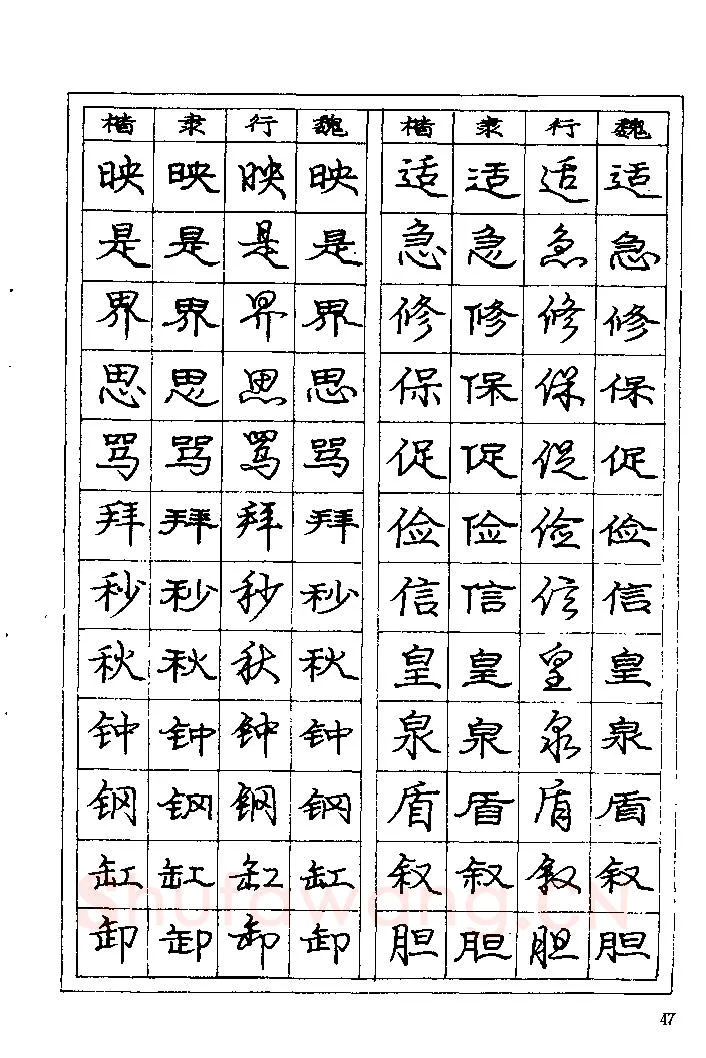 楷 隶 行 魏 楷 隶 行 魏
映 映 映 映 适 适 适 适
是 是 是 是 急 急 急 急
界 界 界 界 修 修 修 修
思 思 思 思 保 保 保 保
骂 骂 骂 骂 促 促 促 促
拜 拜 拜 拜 俭 俭 俭 俭
秒 秒 秒 秒 信 信 信 信
秋 秋 秋 秋 皇 皇 皇 皇
钟 钟 钟 钟 泉 泉 泉 泉
钢 钢 钢 钢 盾 盾 盾 盾
缸 缸 缸 缸 叙 叙 叙 叙
shufawang.CN
卸 卸 卸 卸 胆 胆 胆 胆
47